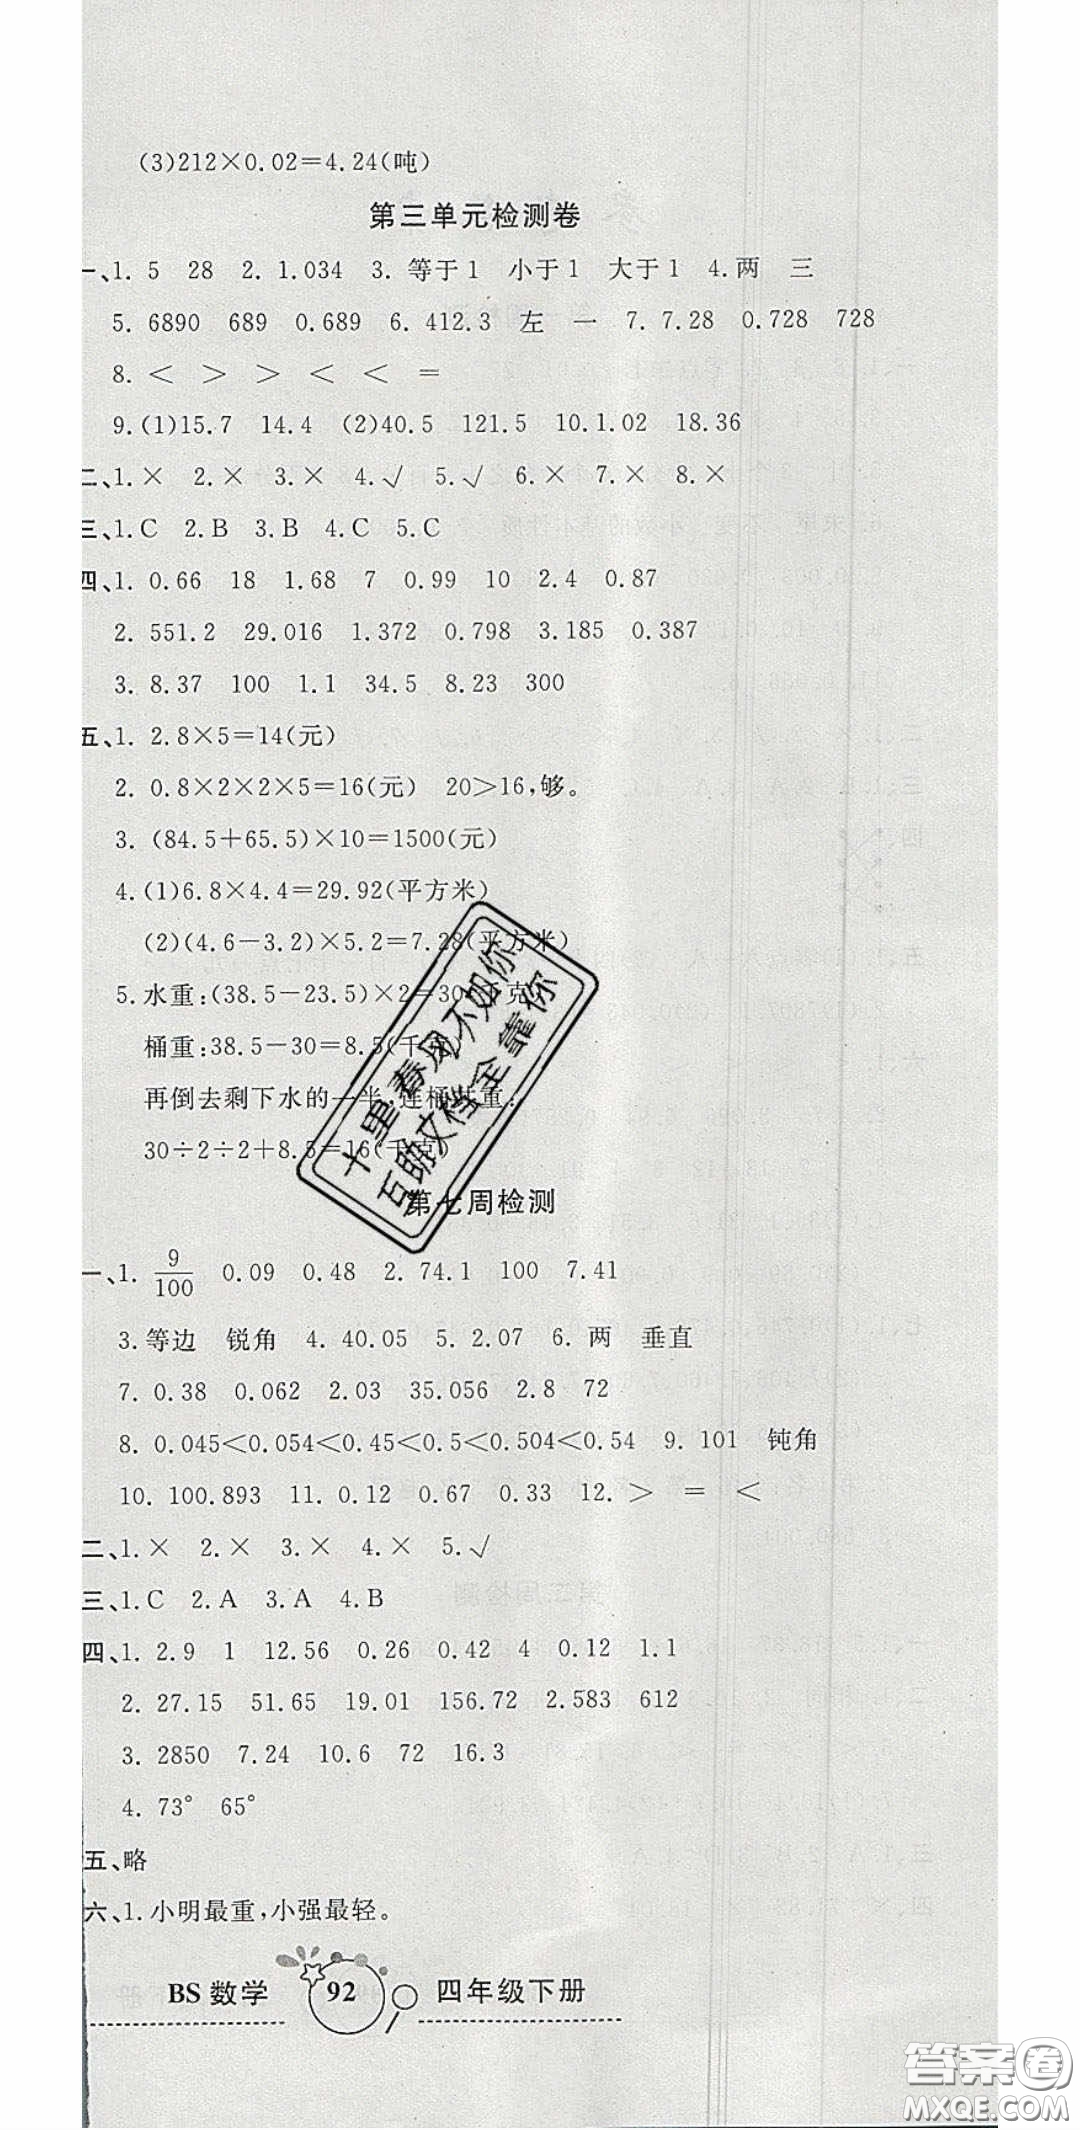 (3)212×0.02=4.24(吨)
第三单元检测卷
一、1. 5 28 2. 1.034 3. 等于1 小于1 大于1 4. 两 三
5. 6890 689 0.689 6. 412.3 左 一 7. 7.28 0.728 728
8. < > > < < =
9. (1)15.7 14.4 (2)40.5 121.5 10. 1.02 18.36
二、1. × 2. × 3. × 4. √ 5. √ 6. × 7. × 8. ×
三、1. C 2. B 3. B 4. C 5. C
四、1. 0.66 18 1.68 7 0.99 10 2.4 0.87
2. 551.2 29.016 1.372 0.798 3.185 0.387
3. 8.37 100 1.1 34.5 8.23 300
五、1. 2.8×5=14(元)
2. 0.8×2×2×5=16(元) 20>16,够。
3. (84.5+65.5)×10=1500(元)
4. (1)6.8×4.4=29.92(平方米)
(2)(4.6-3.2)×5.2=7.28(平方米)
5. 水重:(38.5-23.5)×2=30(千克)
桶重:38.5-30=8.5(千克)
再倒去剩下水的一半,连桶共重:
30÷2÷2+8.5=16(千克)
十里春风不如你
互助文档全靠你
第七周检测
一、1. 9/100 0.09 0.48 2. 74.1 100 7.41
3. 等边 锐角 4. 40.05 5. 2.07 6. 两 垂直
7. 0.38 0.062 2.03 35.056 2.8 72
8. 0.045<0.054<0.45<0.5<0.504<0.54 9. 101 钝角
10. 100.893 11. 0.12 0.67 0.33 12. > = <
二、1. × 2. × 3. × 4. × 5. √
三、1. C 2. A 3. A 4. B
四、1. 2.9 1 12.56 0.26 0.42 4 0.12 1.1
2. 27.15 51.65 19.01 156.72 2.583 612
3. 2850 7.24 10.6 72 16.3
4. 73° 65°
五、略
六、1. 小明最重,小强最轻。
BS 数学 92 四年级下册
答案圈
MXQE.COM